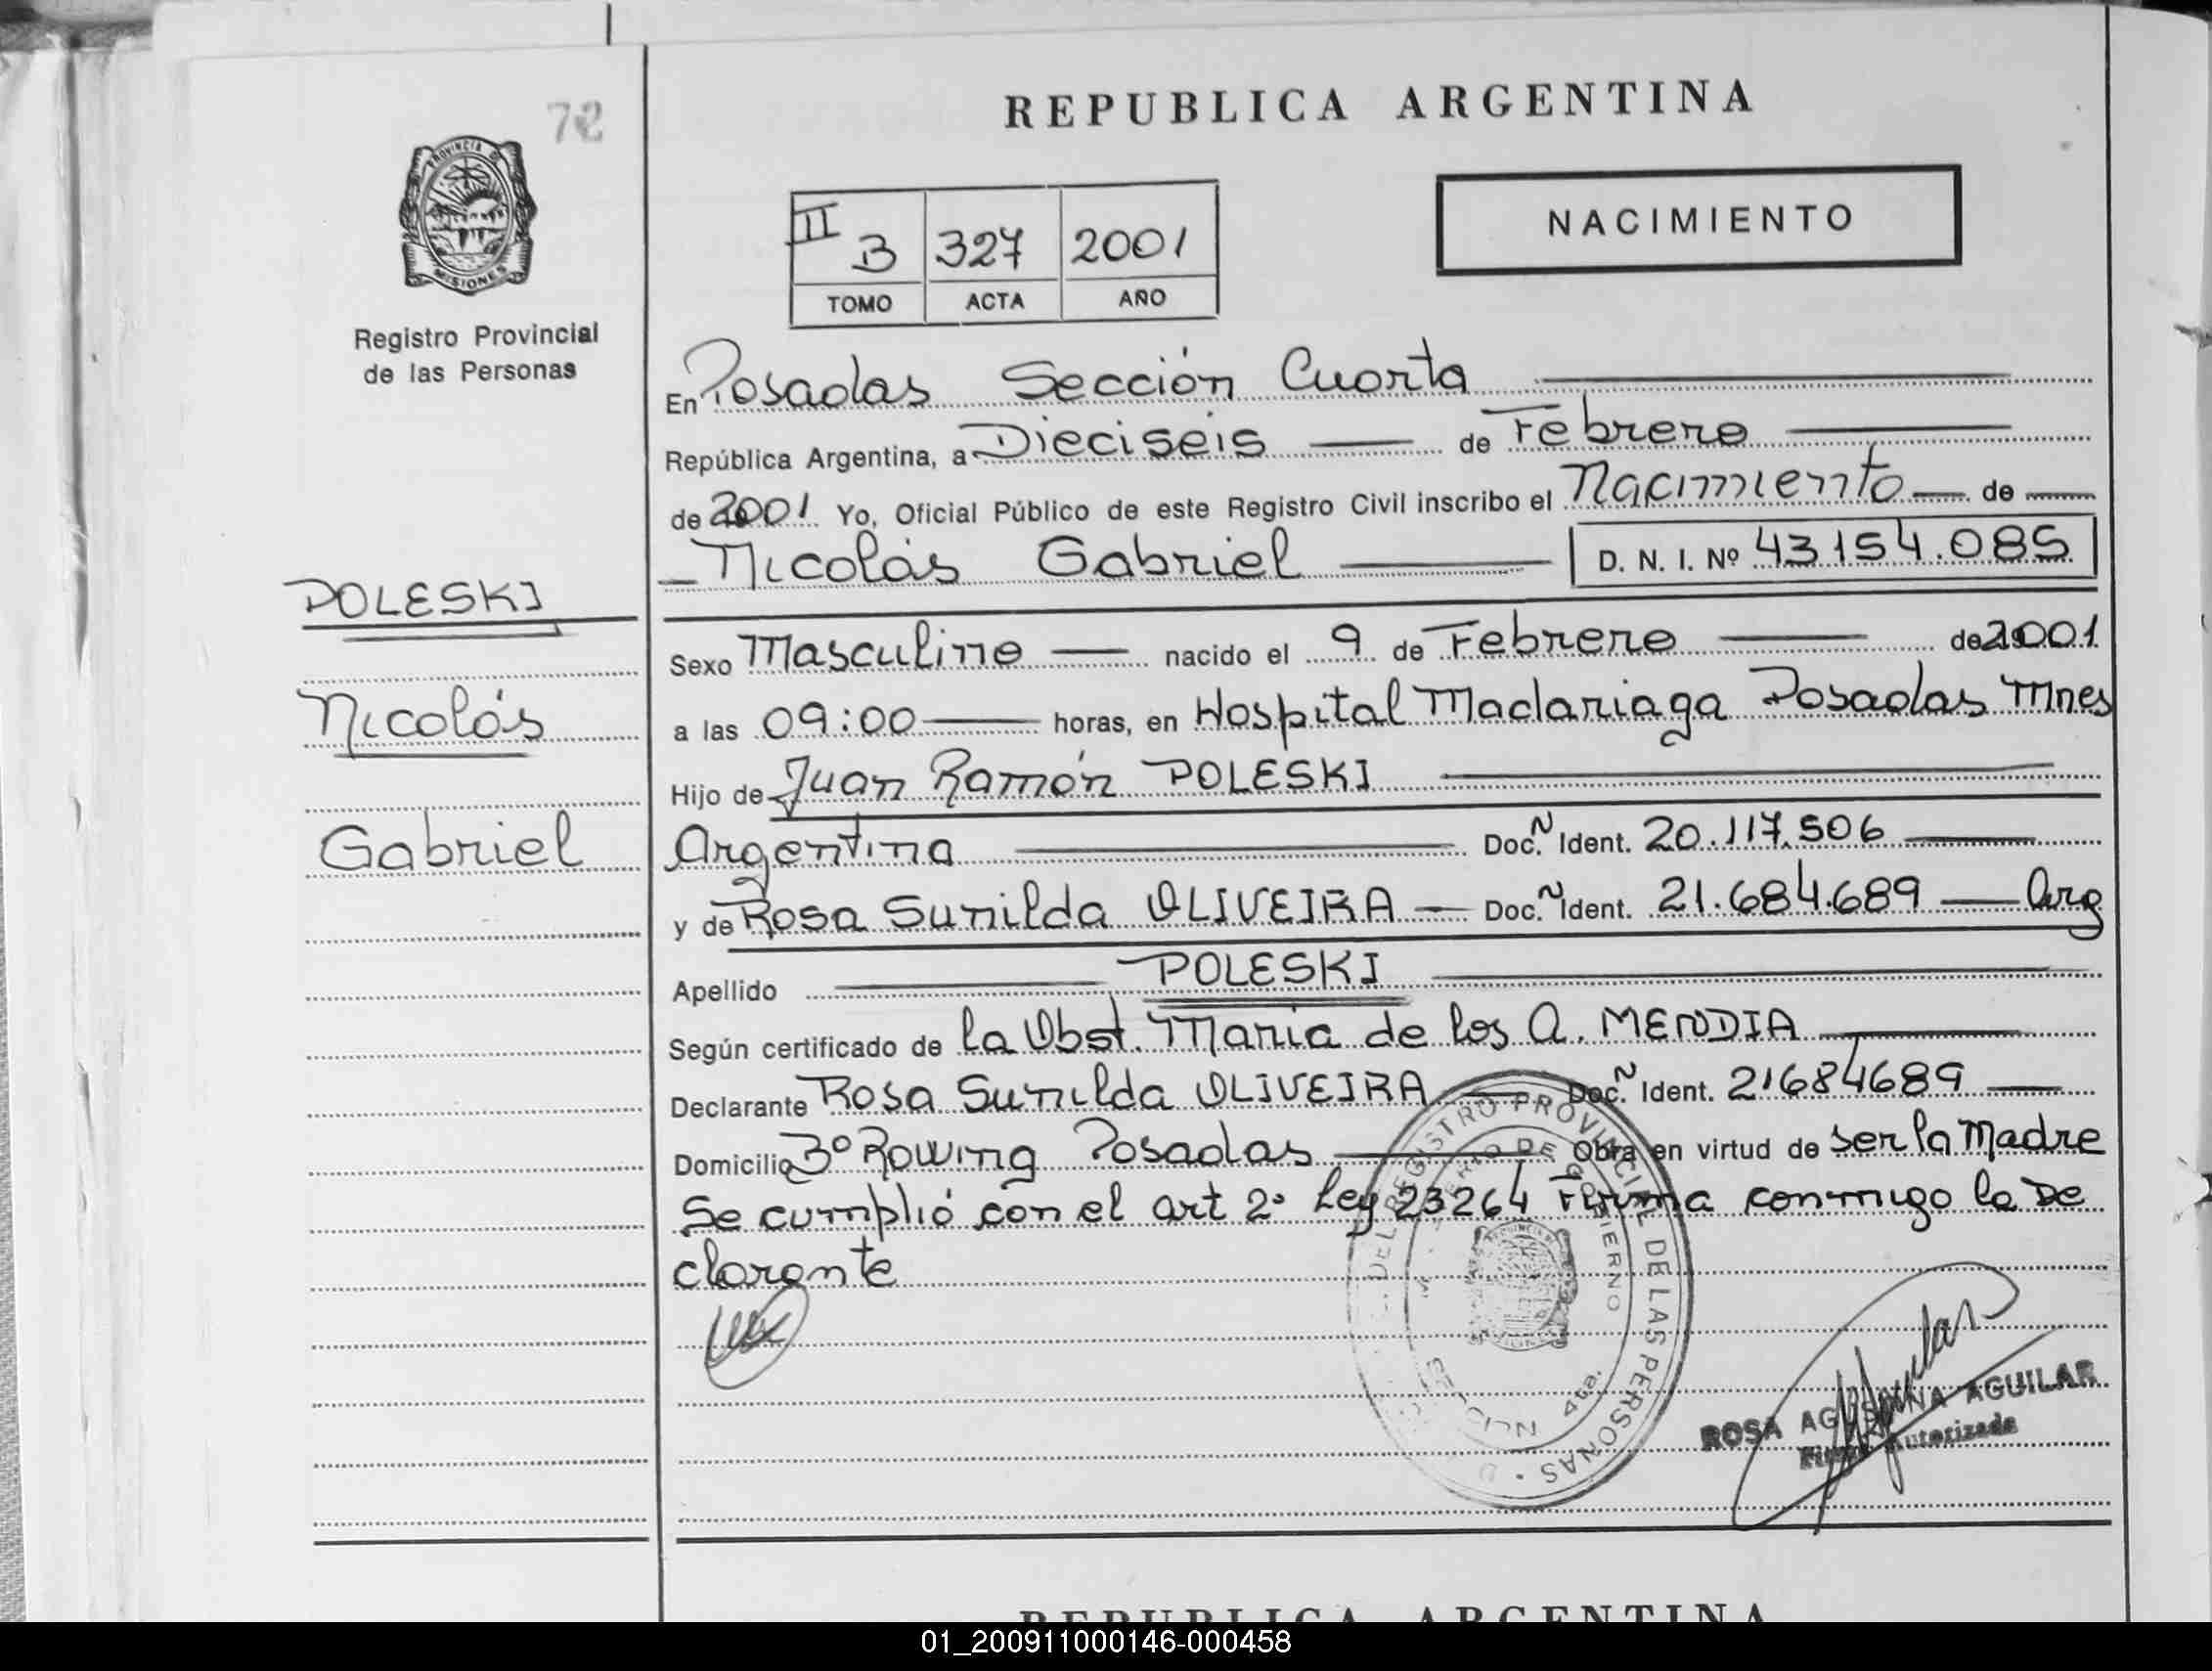 72
PROVINCIA D
MISIONES
Registro Provincial
de las Personas
POLESKI
Nicolás
Gabriel
REPUBLICA ARGENTINA
NACIMIENTO
II B 327 2001
TOMO ACTA AÑO
En Posadas Sección Cuarta
República Argentina, a Dieciseis de Febrero
de 2001 Yo, Oficial Público de este Registro Civil inscribo el Nacimiento de
Nicolás Gabriel D. N. I. Nº 43154.085
Sexo Masculino nacido el 9 de Febrero de 2001
a las 09:00 horas, en Hospital Madariaga Posadas Mnes
Hijo de Juan Ramón POLESKI
Argentina Doc. N Ident. 20.117.506
y de Rosa Sunilda OLIVEIRA Doc. N Ident. 21.684.689 Arg
Apellido POLESKI
Según certificado de la Obst. Maria de los A. MENDIA
Declarante Rosa Sunilda OLIVEIRA Doc. N Ident. 21684689
Domicilio Bº Rowing Posadas Obra en virtud de ser la Madre
Se cumplió con el art 2º Ley 23264 Firma conmigo la De
clarante
DEL REGISTRO PROVINCIAL DE LAS PERSONAS
DE GOBIERNO
4ta.
ROSA AGUSTINA AGUILAR
Firma Autorizada
REPUBLICA ARGENTINA
01_200911000146-000458